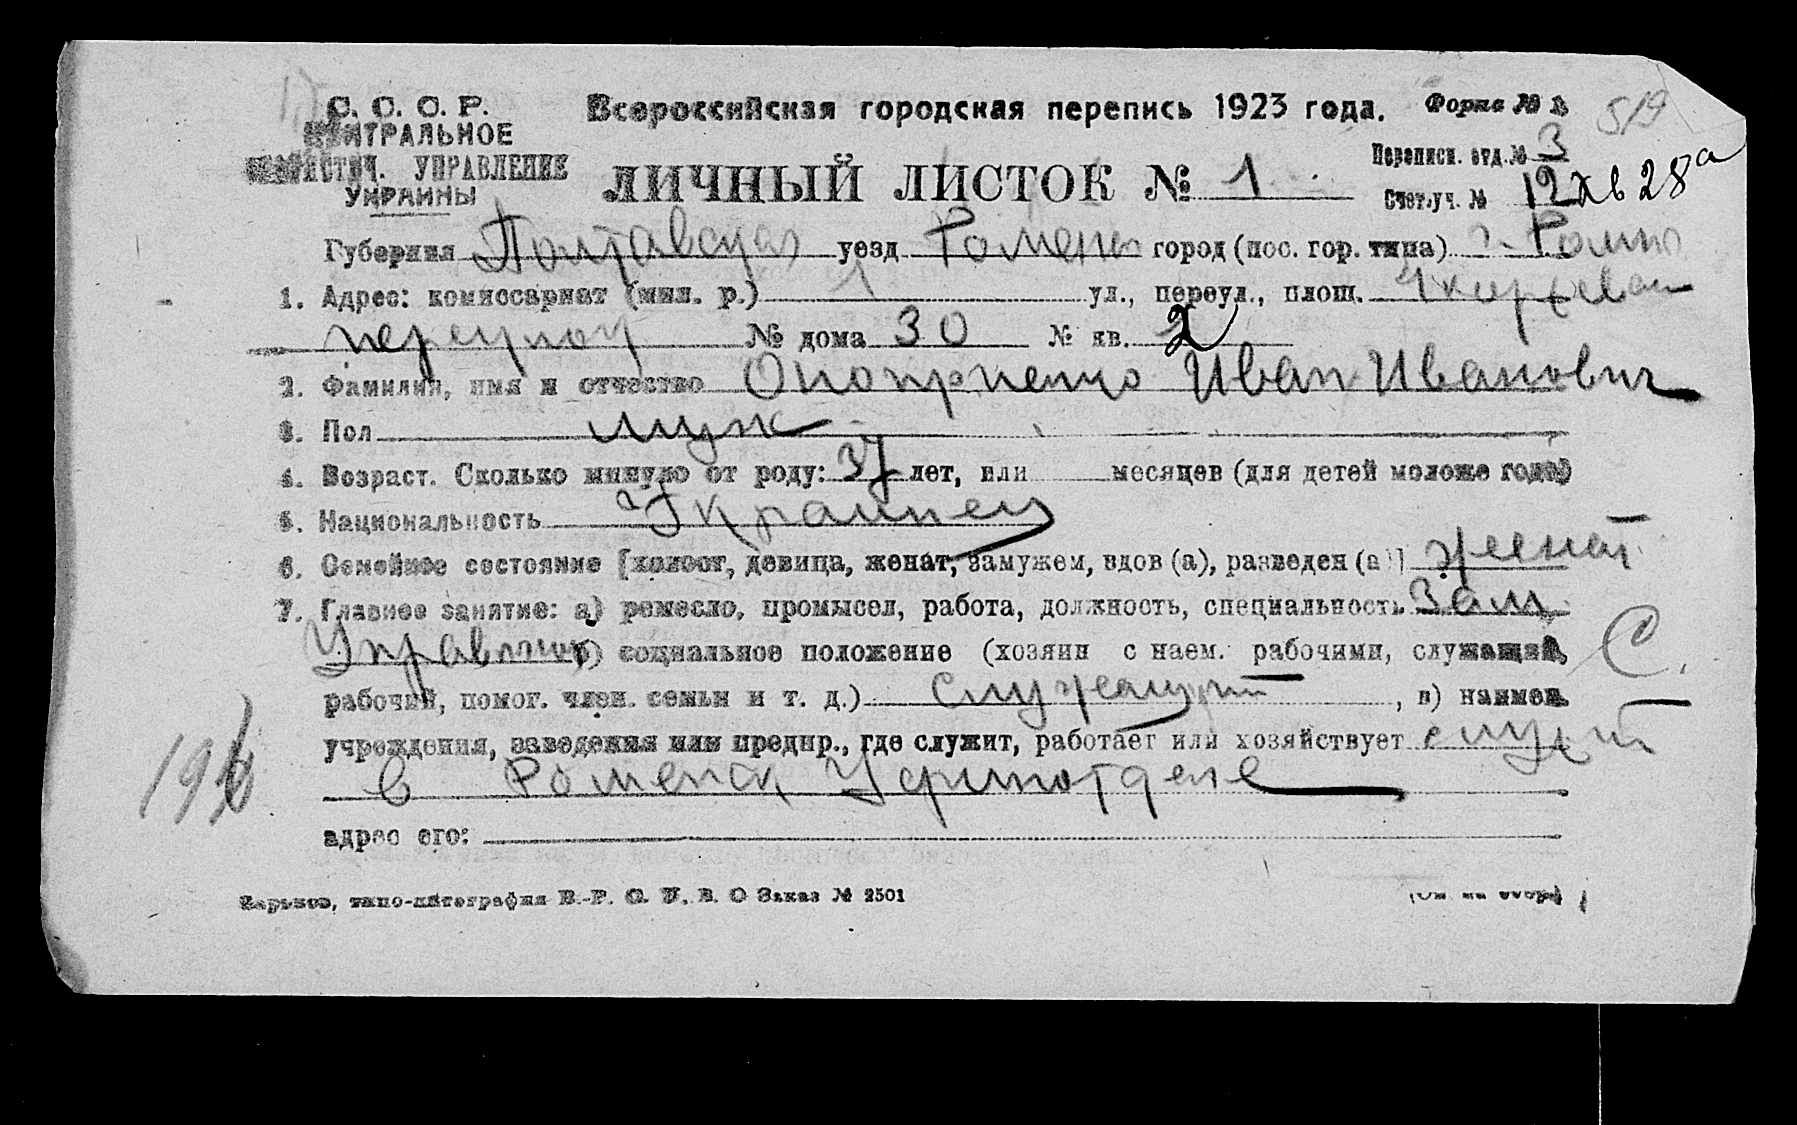 С. С. С. Р.
ЦЕНТРАЛЬНОЕ
СТАТИСТИЧ. УПРАВЛЕНИЕ
УКРАИНЫ
Всероссийская городская перепись 1923 года.
Форма № 519
ЛИЧНЫЙ ЛИСТОК № 1
Переписн. отд. № 3
Счет. уч. № 12 кв 28а
Губерния Полтавская уезд Ромены город (пос. гор. типа) г. Ромны
1. Адрес: комиссариат (мил. р.) 1 ул., переул., площ.
переулок № дома 30 № кв. 2
2. Фамилия, имя и отчество Оноприенко Иван Иванович
3. Пол муж
4. Возраст. Сколько минуло от роду: 37 лет, или месяцев (для детей моложе года)
5. Национальность Украинец
6. Семейное состояние [холост, девица, женат, замужем, вдов (а), разведен (а)] женат
7. Главное занятие: а) ремесло, промысел, работа, должность, специальность Зам
б) социальное положение (хозяин с наем. рабочими, служащий, С.
рабочий, помог. член. семьи и т. д.) служащий, в) наимен.
учреждения, заведения или предпр., где служит, работает или хозяйствует служит
196
в Роменск Уфинотделе
адрес его:
Харьков, типо-литография В.-Р. О. У. В. О Заказ № 2501